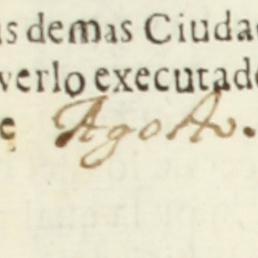 us demas Ciuda
verlo executado
e Agosto.